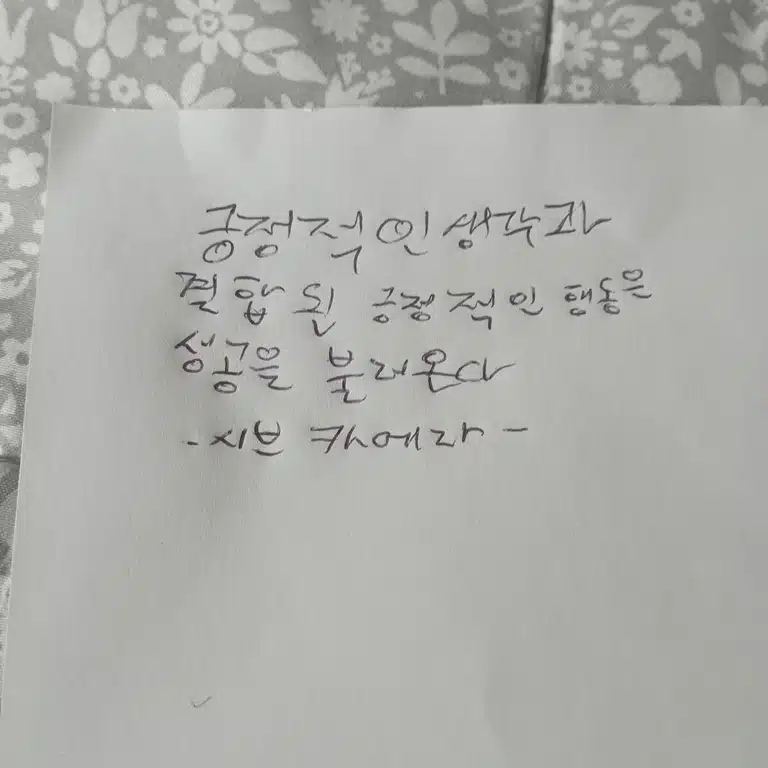 긍정적인 생각과
결합된 긍정적인 행동은
성공을 불러온다
- 시브 카에라 -